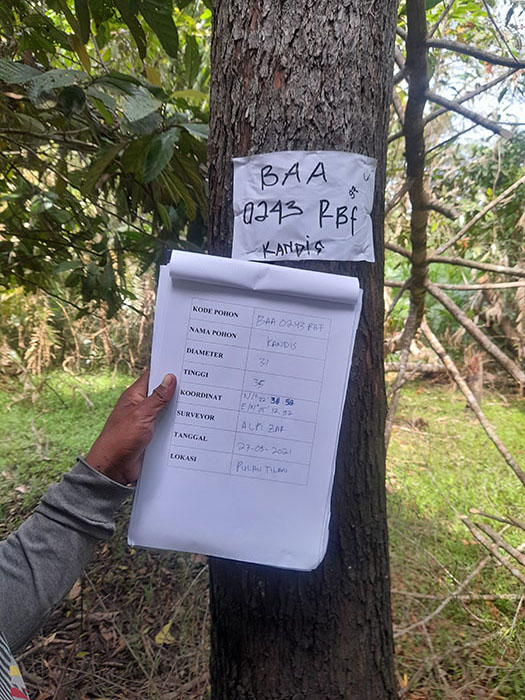 BAA
0243 RBf
KANDIS
KODE POHON BAA 0243 RBF
NAMA POHON KANDIS
DIAMETER 31
TINGGI 35
KOORDINAT
SURVEYOR
TANGGAL 27-03-2021
LOKASI PULAU TILAN